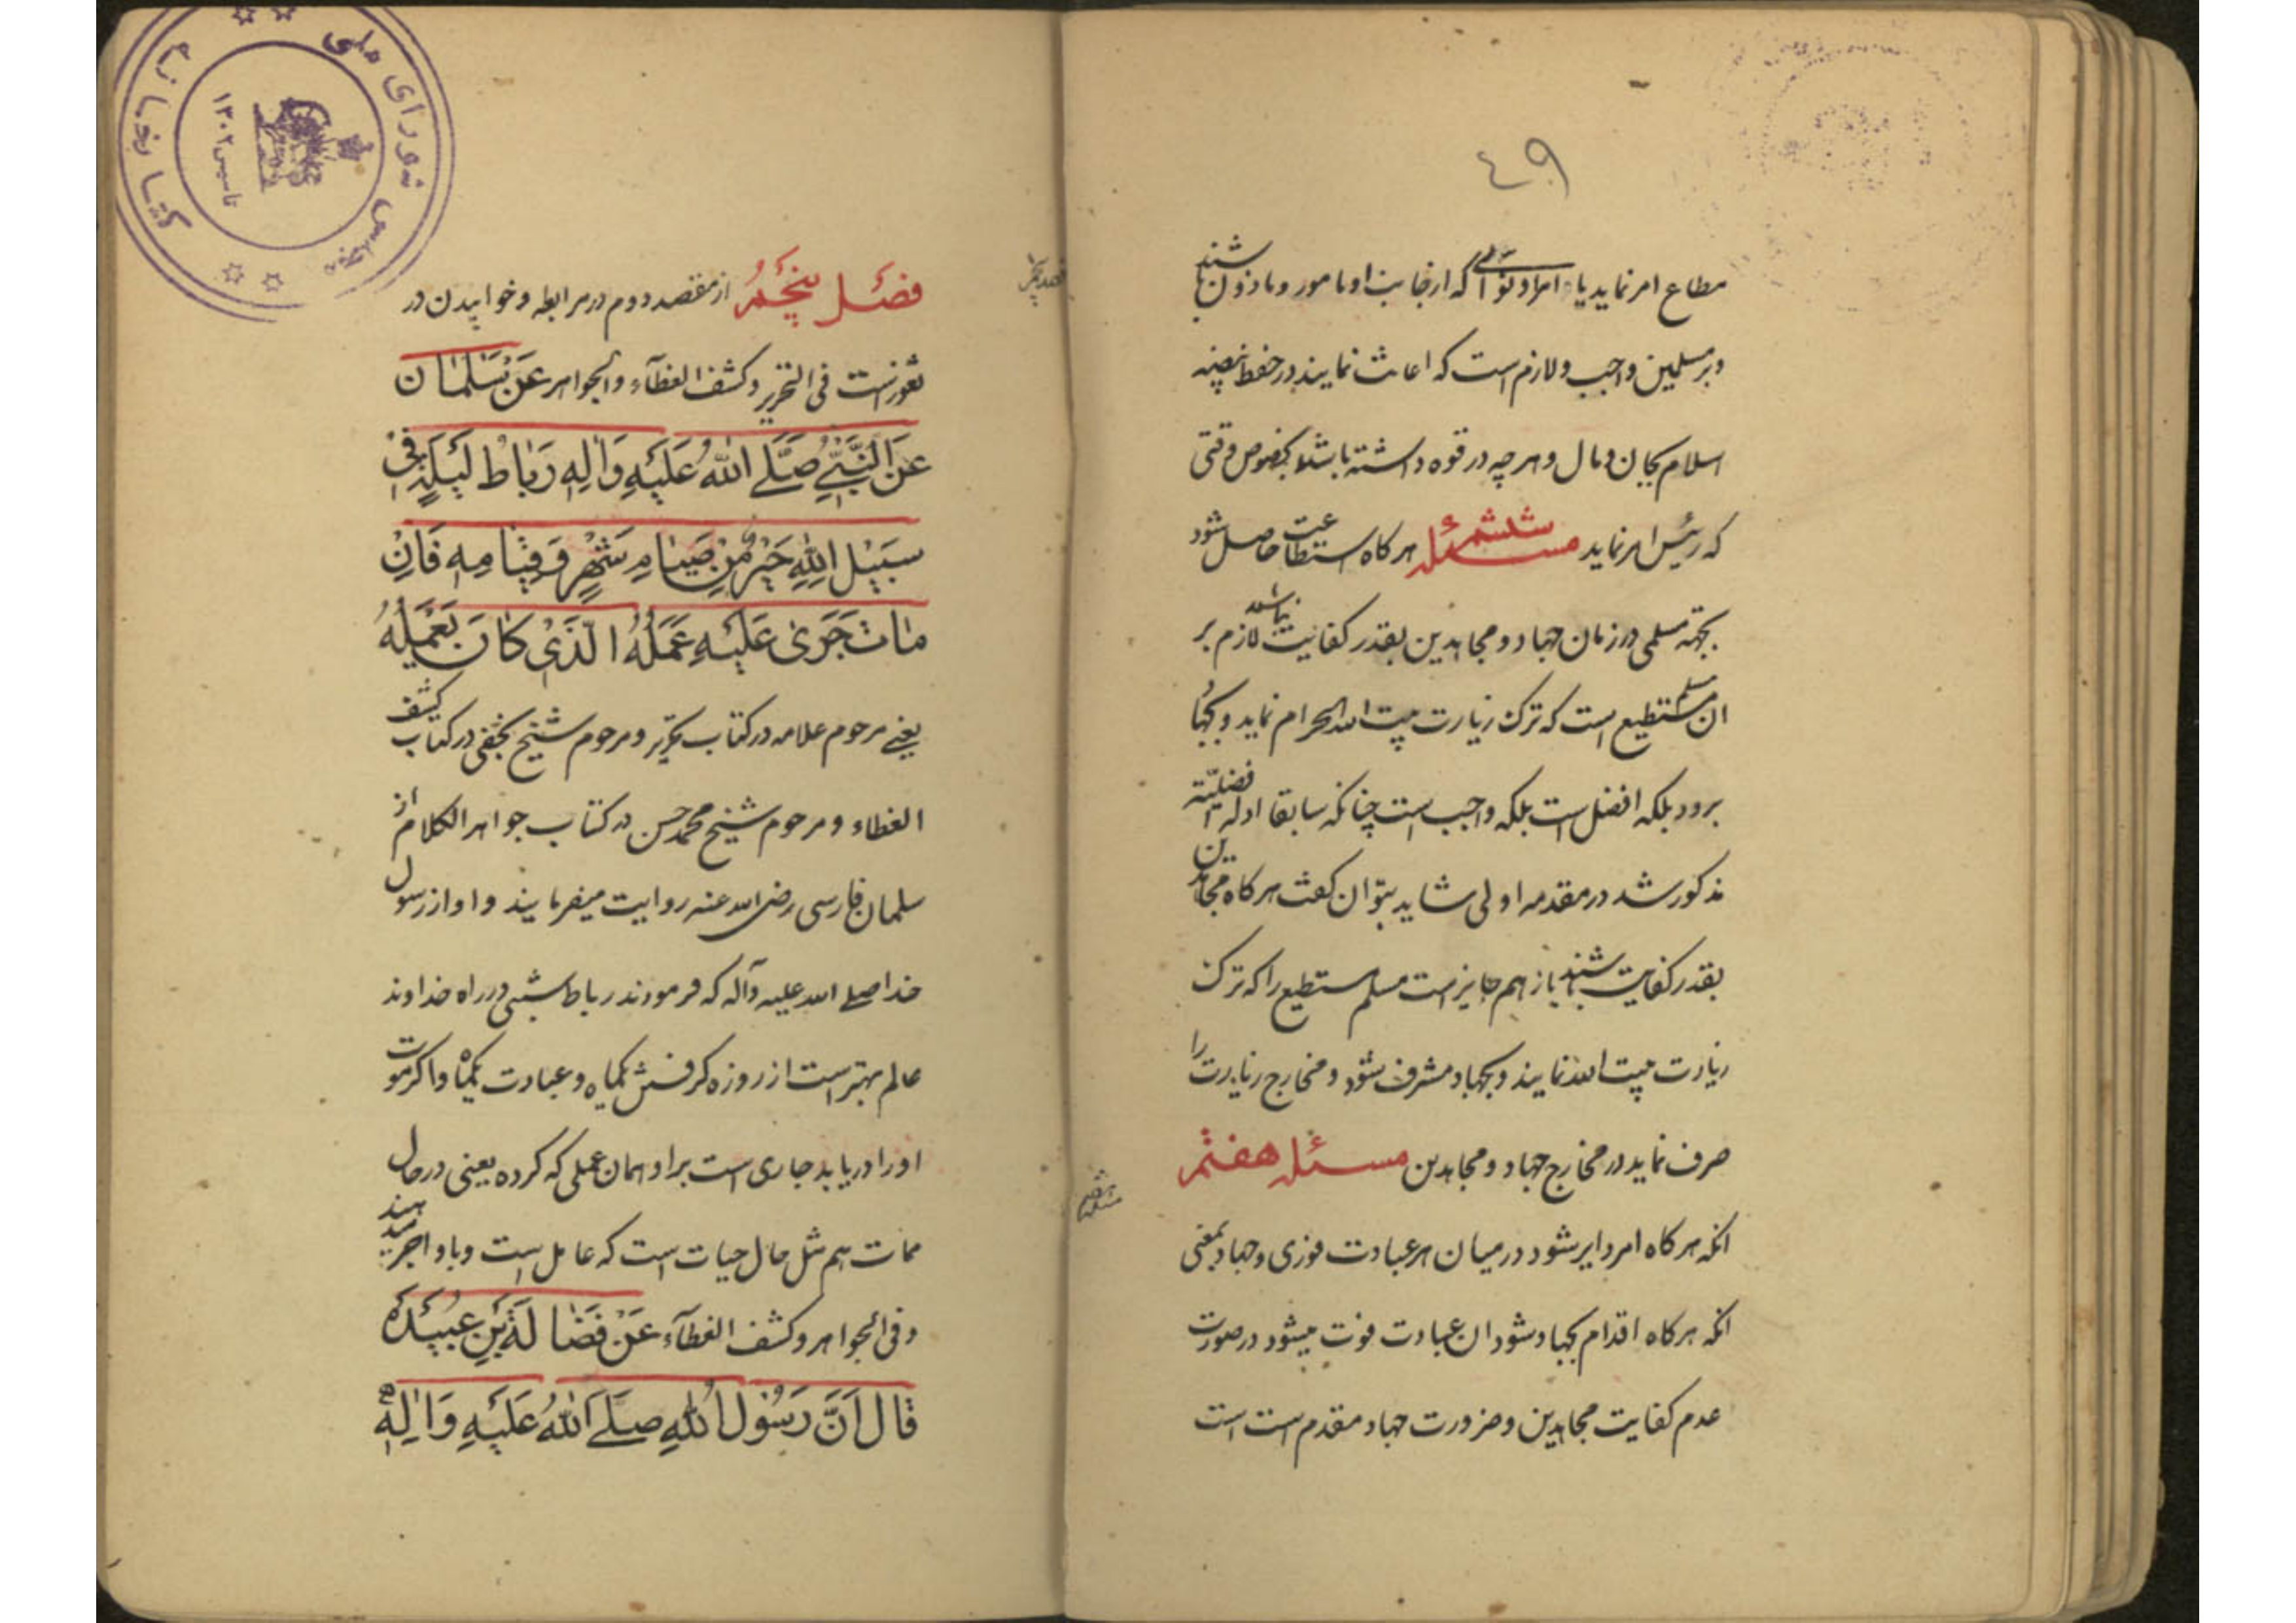 ٤٩
مطاع امر نماید یا امرا و نوابی که از جانب او مامور و ماذون باشند
و بر مسلمین واجب و لازم است که اعانت نمایند در حفظ بیضه
اسلام بجان و مال و هر چه در قوه داشته باشند بخصوص وقتی
که رئیس امر نماید مسئله ششم هر کاه استطاعت حاصل شود
بجهة مسلمی در زمان جهاد و مجاهدین بقدر کفایت نباشند لازم بر
ان مسلم مستطیع است که ترک زیارت بیت الله الحرام نماید و بجهاد
برود بلکه افضل است بلکه واجب است چنانکه سابقا ادله افضلیته
مذکور شد در مقدمه اولی شاید بتوان کفت هر کاه مجاهدین
بقدر کفایت باشند باز هم جایز است مسلم مستطیع را که ترک
زیارت بیت الله نمایند و بجهاد مشرف شود و مخارج زیارت را
صرف نماید در مخارج جهاد و مجاهدین مسئله هفتم
انکه هر کاه امر دایر شود در میان هر عبادت فوری و جهاد بمعنی
انکه هر کاه اقدام بجهاد شود ان عبادت فوت میشود در صورت
عدم کفایت مجاهدین و ضرورت جهاد مقدم است است
مسئله هفتم
کتابخانه مجلس شورای ملی
تاسیس ۱۳۰۲
فصل پنجم از مقصد دوم در مرابطه و خوابیدن در
ثغور است فی التحریر و کشف الغطآء و الجواهر عَنْ سَلْمٰان
عَنِ النَّبِیِّ صَلَّی اللّٰهُ عَلَیْهِ وَاٰلِهِ رَبٰاطُ لَیْلَةٍ فی
سَبیٖلِ اللّٰهِ خَیْرٌ مِنْ صِیٰامِ شَهْرٍ وَ قِیٰامِهِ فَاِنْ
مٰاتَ جَریٰ عَلَیْهِ عَمَلُهُ الَّذی کٰانَ یَعْمَلُهُ
یعنی مرحوم علامه در کتاب تحریر و مرحوم شیخ نجفی در کتاب کشف
الغطاء و مرحوم شیخ محمد حسن در کتاب جواهر الکلام از
سلمان فارسی رضی الله عنه روایت میفرمایند و او از رسول
خدا صلی الله علیه وآله که فرمودند رباط شبی در راه خداوند
عالم بهتر است از روزه کرفتن یکماه و عبادت یکماه و اکر موت
او را دریابد جاری است بر او همان عملی که کرده یعنی در حال
ممات هم مثل حال حیات است که عامل است و باو اجر میدهند
و فی الجواهر و کشف الغطآء عَنْ فَضٰالَةِ بْنِ عُبَیْدَه
قٰالَ اَنَّ رَسُولَ اللّٰهِ صَلَّی اللّٰهُ عَلَیْهِ وَاٰلِهِ